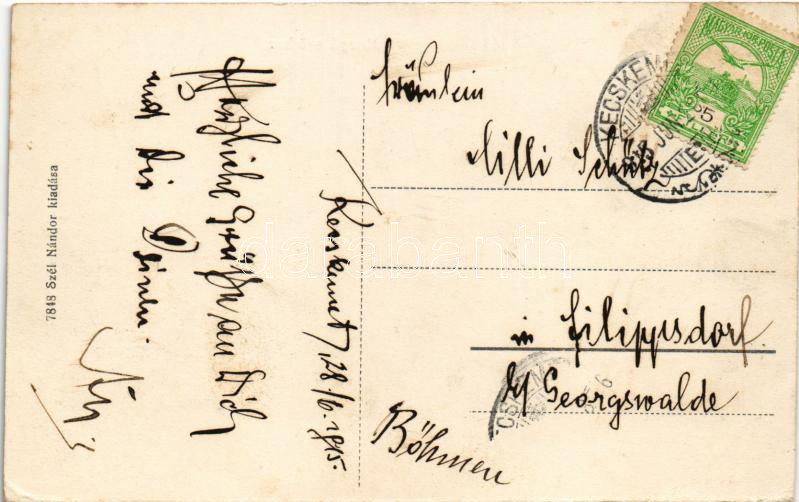 Herzliche Grüße an Dich
und die Deinen.
Kecskemét, 28/6. 1915.
Fräulein
Cilli Schütz
in Filippsdorf
b/ Georgswalde
Böhmen
7848 Szél Nándor kiadása
MAGYAR KIR. POSTA
KECSKEMÉT
darabanth